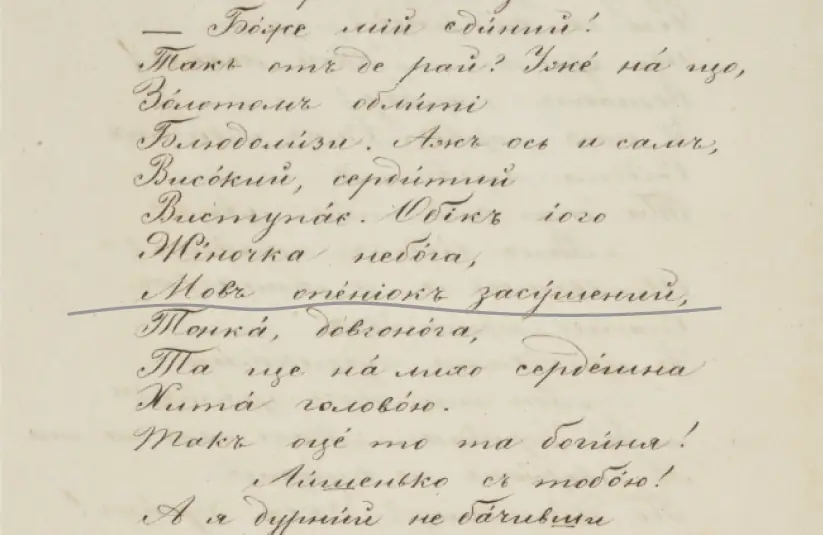 — Бо́же мій єди́ний!
Такъ отъ де рай? Уже́ на́ що,
Зо́лотомъ обли́ті
Блюдоли́зи. Ажъ ось и самъ,
Висо́кий, серди́тий
Виступа́є. Обікъ іого
Жіночка небо́га,
Мовъ опе́ніокъ засу́шений,
Тонка́, довгоно́га,
Та ще на́ лихо серде́шна
Хита́ голово́ю.
Такъ оце́ то та боги́ня!
Ли́шенько съ тобо́ю!
А я дурни́й не ба́чивши